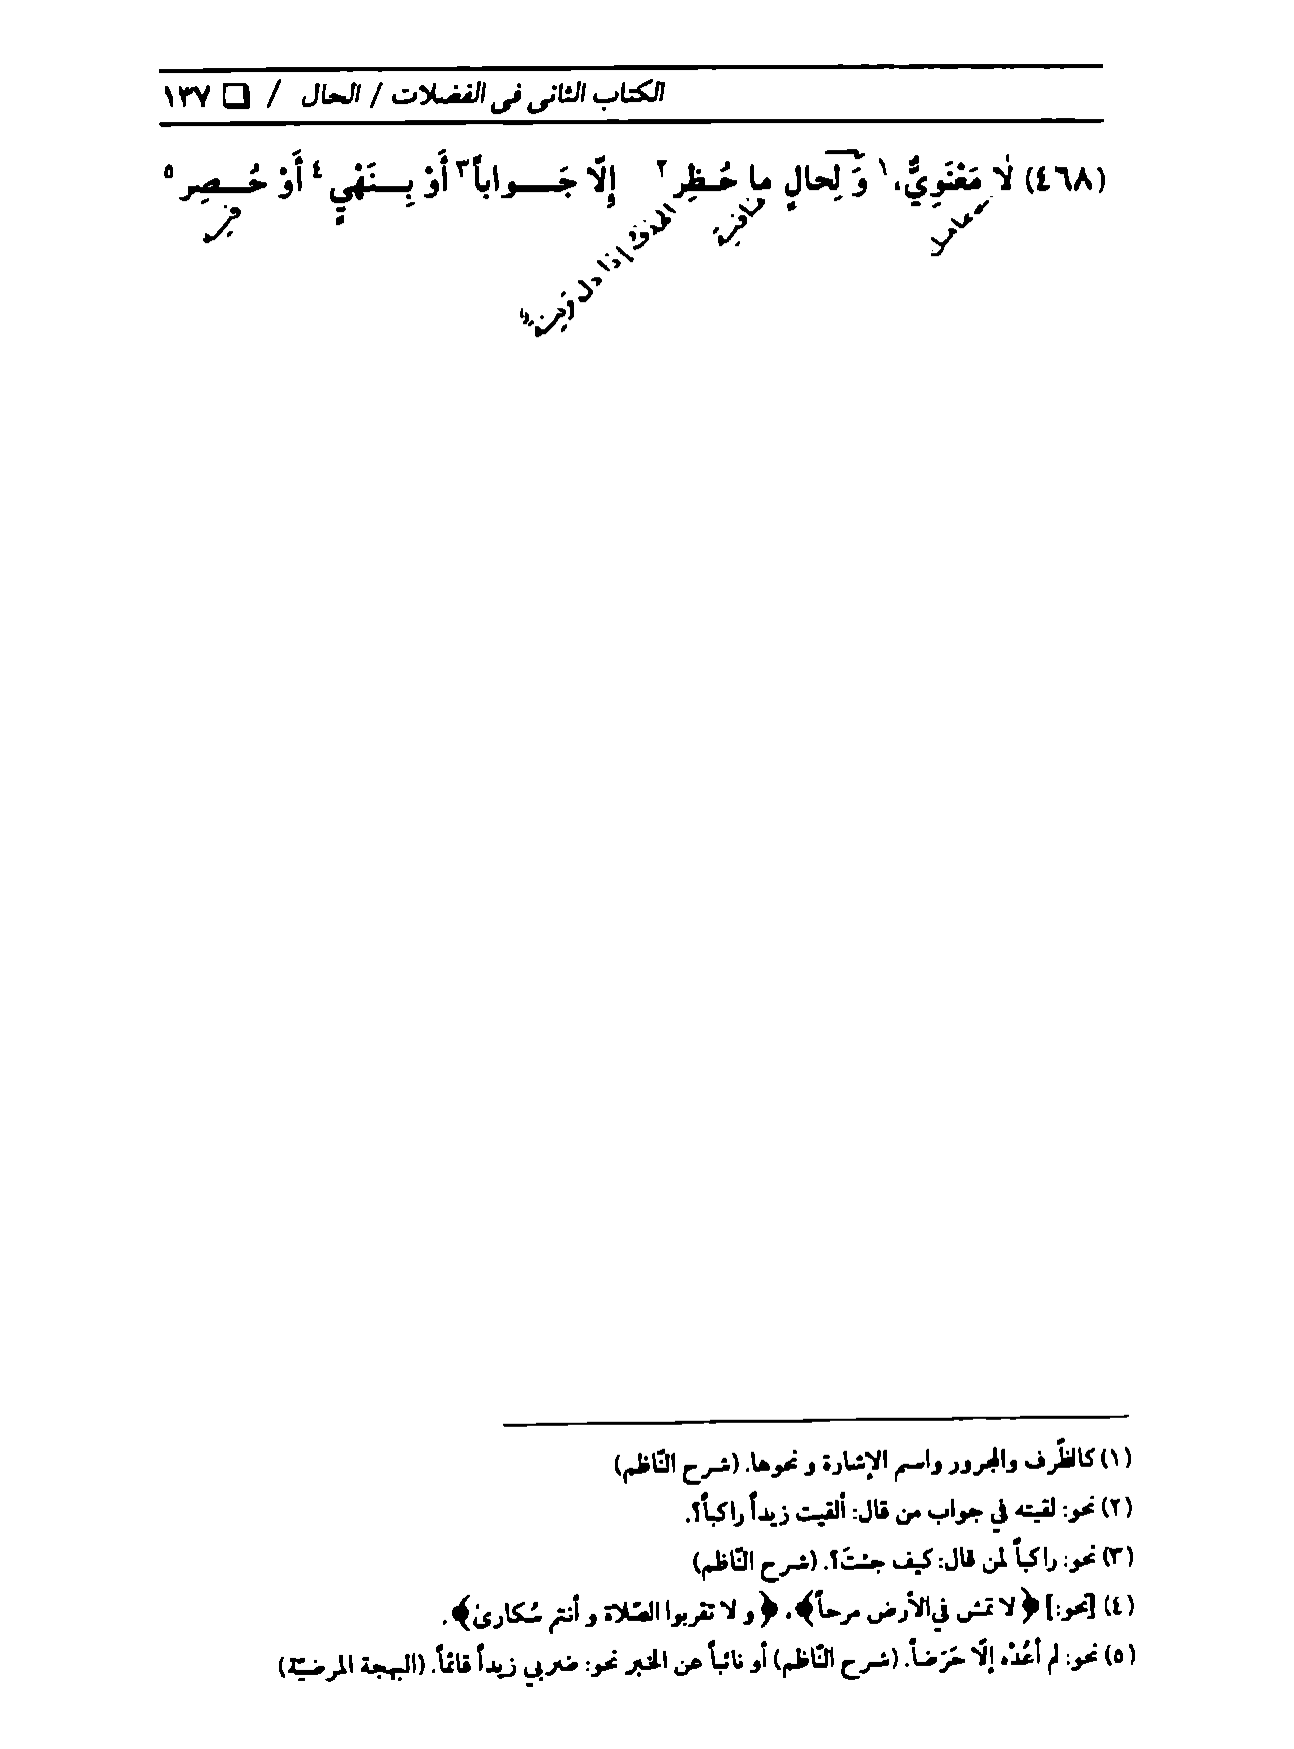 الكتاب الثانى فى الفضلات / الحال / ❏ ١٣٧
(٤٦٨) لَا مَعْنَوِيٌّ،١ وَ لِحالٍ ما حُظِر٢ إِلَّا جَواباً٣ أَوْ بِنَهْيٍ٤ أَوْ حُصِر٥
عامل
نافية
الحذف إذا دل قرينة
فيه
(١) كالظّرف والمجرور واسم الإشارة و نحوها. (شرح النّاظم)
(٢) نحو: لقيته في جواب من قال: ألقيت زيداً راكباً؟.
(٣) نحو: راكباً لمن قال: كيف جئتَ؟. (شرح النّاظم)
(٤) [نحو:] ﴿لا تمش في الأرض مرحاً﴾، ﴿و لا تقربوا الصّلاة و أنتم سُكارىٰ﴾.
(٥) نحو: لم أعُدْه إلّا حَرَضاً. (شرح النّاظم) أو نائباً عن الخبر نحو: ضربي زيداً قائماً. (البهجة المرضيّة)